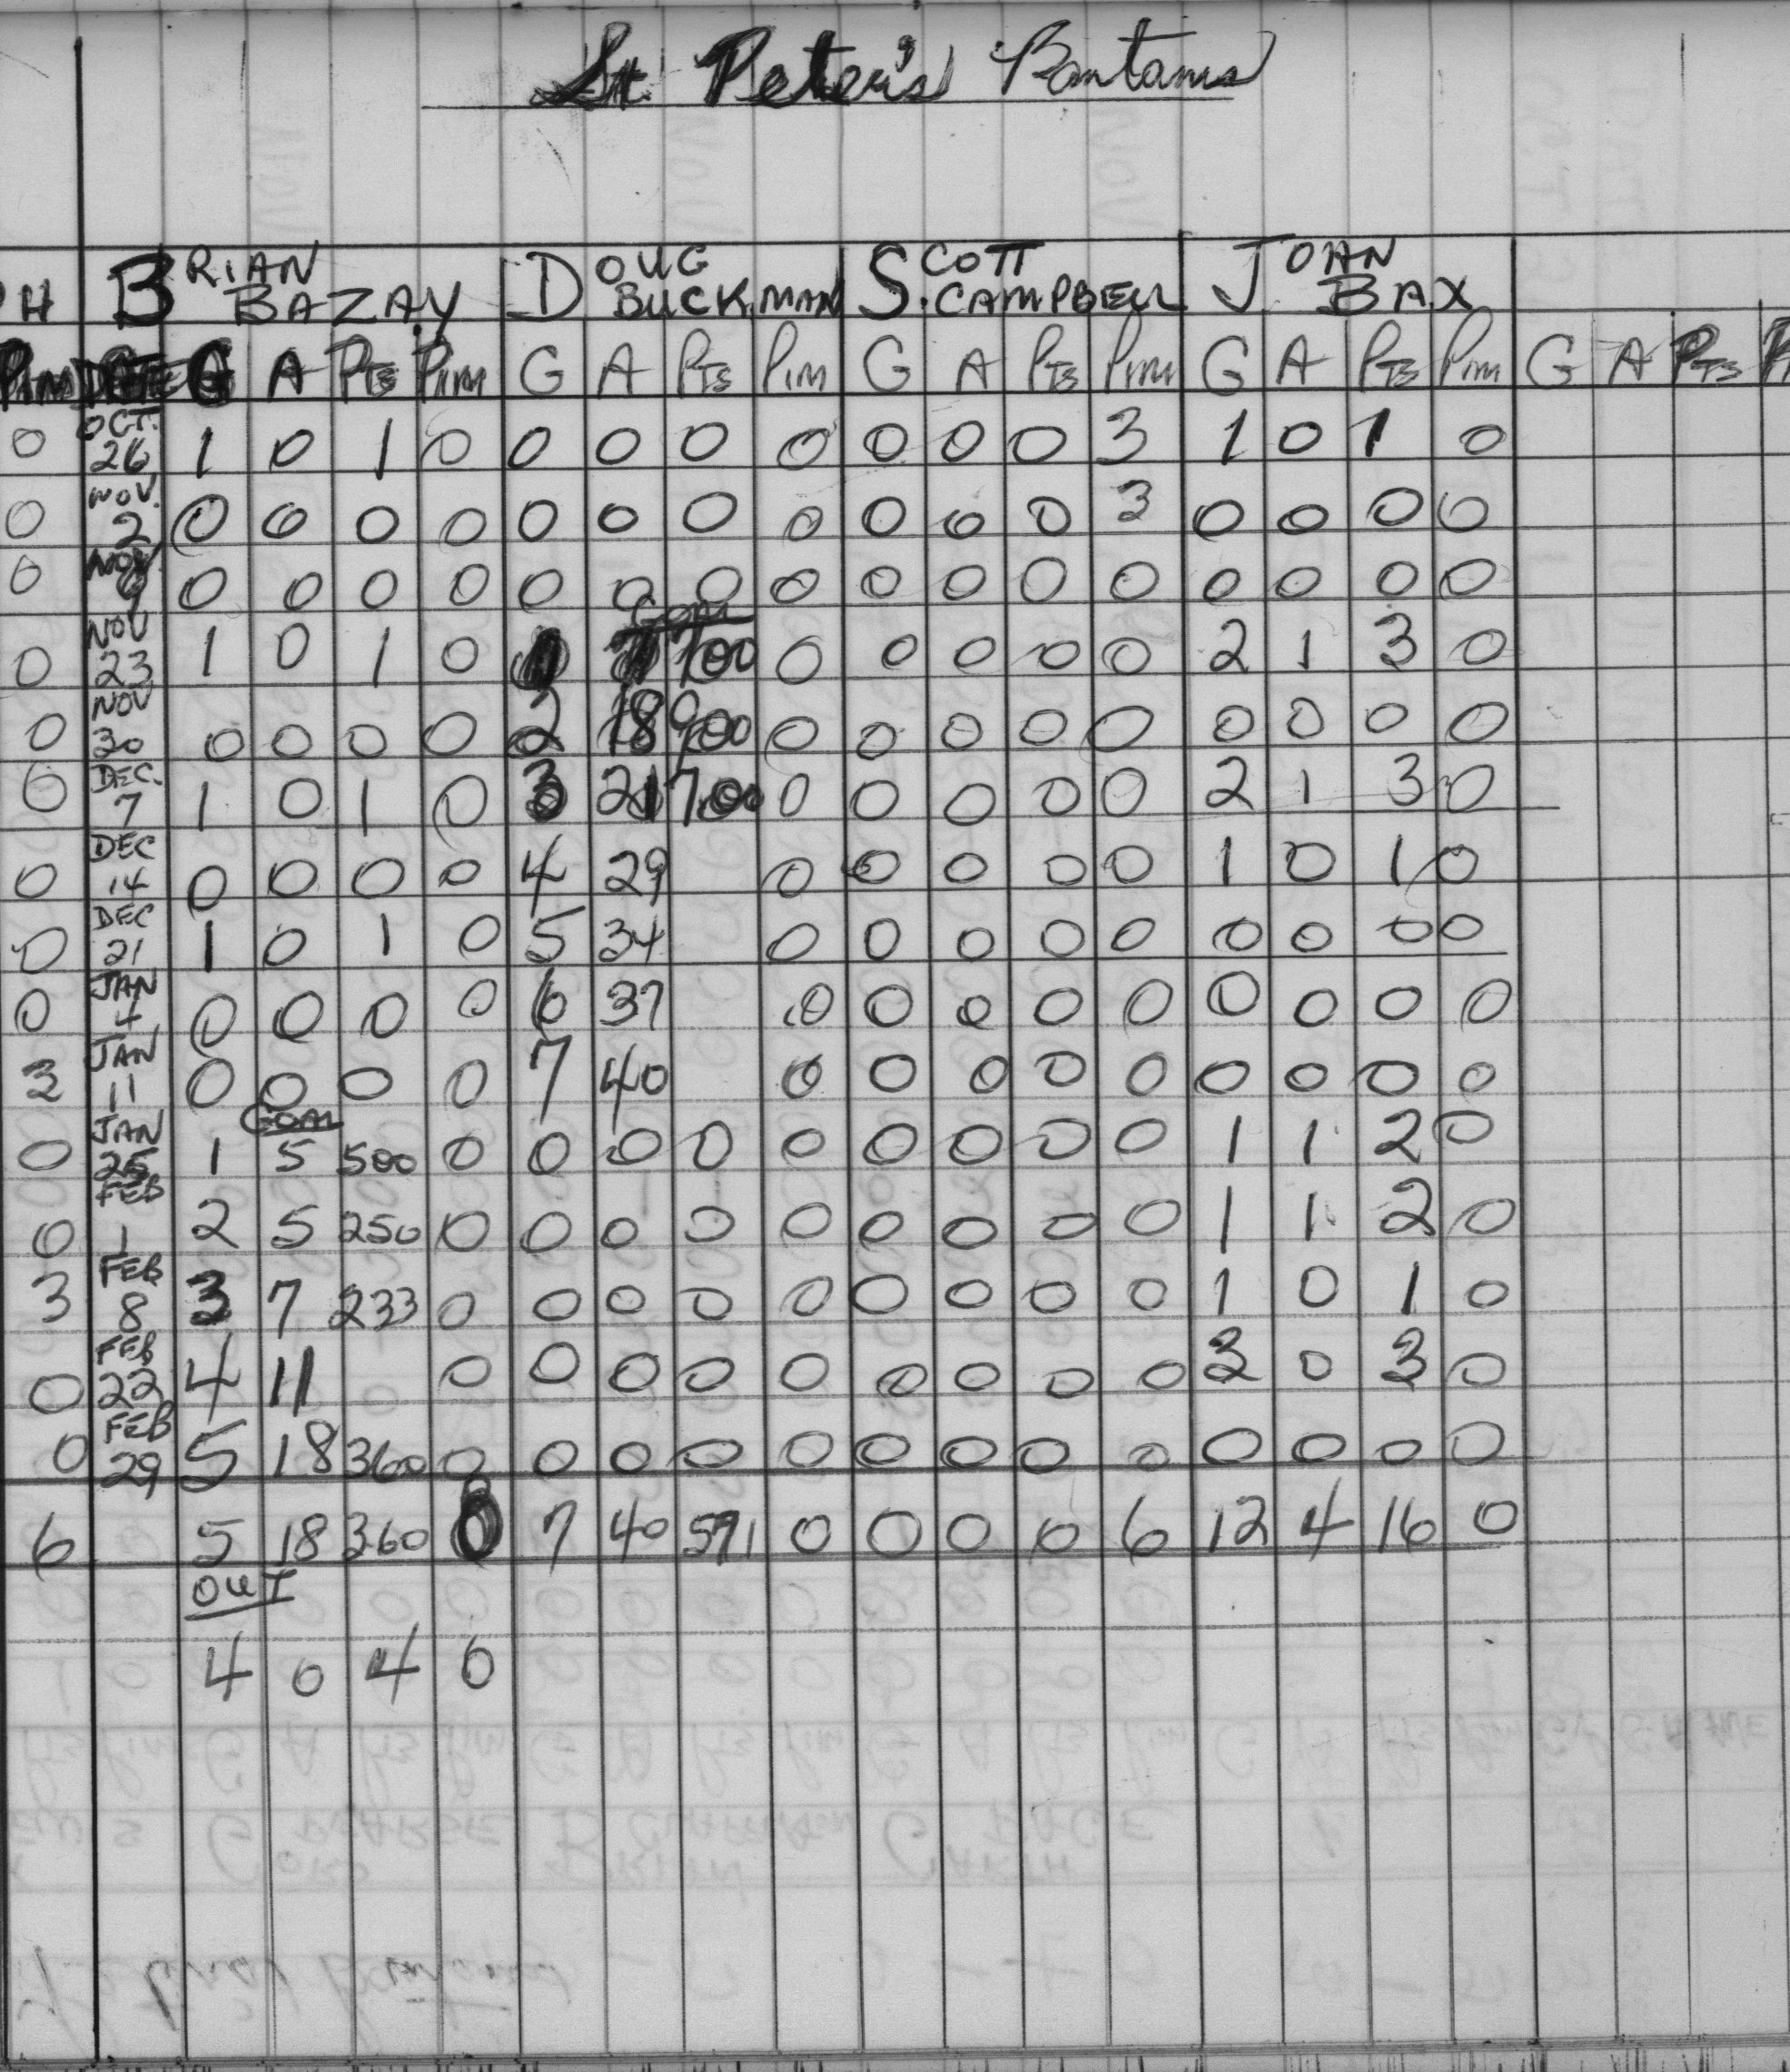 St. Peter's Bantams
H BRIAN BAZAY DOUG BUCKMAN SCOTT CAMPBELL JOHN BAX
PIM DATE G A PTS PIM G A PTS PIM G A PTS PIM G A PTS PIM G A PTS
0 OCT. 26 1 0 1 0 0 0 0 0 0 0 0 3 1 0 1 0
0 NOV. 2 0 0 0 0 0 0 0 0 0 0 0 3 0 0 0 0
0 NOV. 9 0 0 0 0 0 0 0 0 0 0 0 0 0 0 0 0
Goal
0 NOV 23 1 0 1 0 1 7 700 0 0 0 0 0 2 1 3 0
0 NOV 30 0 0 0 0 2 18 900 0 0 0 0 0 0 0 0 0
0 DEC. 7 1 0 1 0 3 21 7.00 0 0 0 0 0 2 1 3 0
0 DEC 14 0 0 0 0 4 29 0 0 0 0 0 1 0 1 0
0 DEC 21 1 0 1 0 5 34 0 0 0 0 0 0 0 0 0
0 JAN 4 0 0 0 0 6 37 0 0 0 0 0 0 0 0 0
3 JAN 11 0 0 0 0 7 40 0 0 0 0 0 0 0 0 0
Goal
0 JAN 25 1 5 500 0 0 0 0 0 0 0 0 0 1 1 2 0
0 FEB 1 2 5 250 0 0 0 0 0 0 0 0 0 1 1 2 0
3 FEB 8 3 7 233 0 0 0 0 0 0 0 0 0 1 0 1 0
0 FEB 22 4 11 0 0 0 0 0 0 0 0 0 3 0 3 0
0 FEB 29 5 18 360 0 0 0 0 0 0 0 0 0 0 0 0 0
6 5 18 360 0 7 40 571 0 0 0 0 6 12 4 16 0
OUT
4 0 4 0